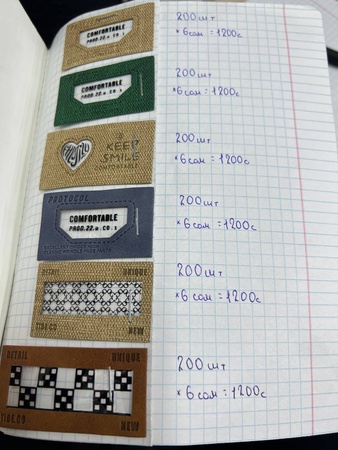 COMFORTABLE
PROD.22.
200шт
×6сом = 1200с
COMFORTABLE
PROD.22.a.co.
200шт
×6сом = 1200с
KEEP
SMILE
COMFORTABLE
200шт
×6сом = 1200с
PROTOCOL
COMFORTABLE
PROD.22.a.co.
200шт
×6сом = 1200с
DETAIL UNIQUE
TIDE.CO NEW
200шт
×6сом = 1200с
DETAIL UNIQUE
TIDE.CO NEW
200шт
×6сом = 1200с